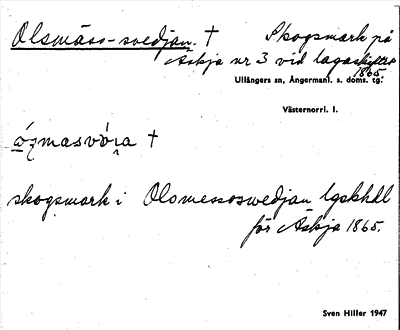 Olsmäss-svedjan. † Skogsmark på
Äskja nr 3 vid lagaskiftet
1865.
Ullångers sn, Ångermanl. s. doms. tg.
Västernorrl. l.
skogsmark i Olsmessoswedjan lgskhdl
för Äskja 1865.
Sven Hiller 1947